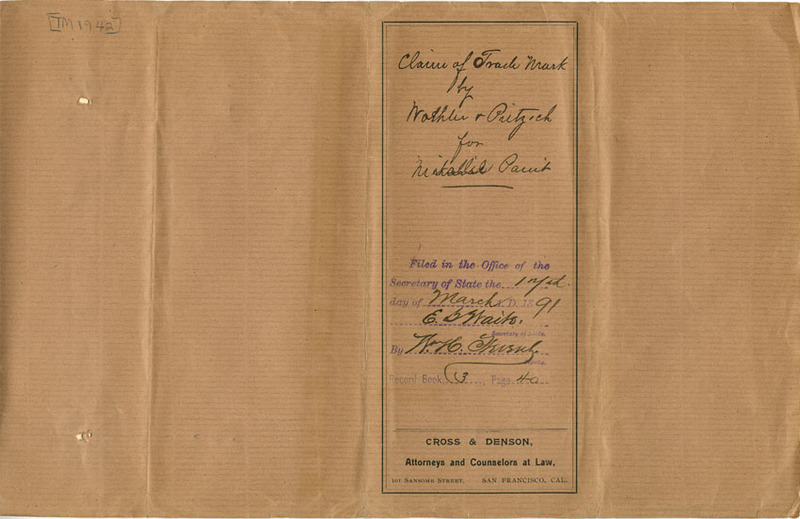 [TM 1942]
Claim of Trade Mark
by
& Pritzsch
for
Metallic Paint
Filed in the Office of the
Secretary of State the
day of March A. D. 1891
E. G. Waite.
Secretary of State.
By W. H.
Record Book 3, Page 40
CROSS & DENSON,
Attorneys and Counselors at Law,
101 SANSOME STREET, SAN FRANCISCO, CAL.